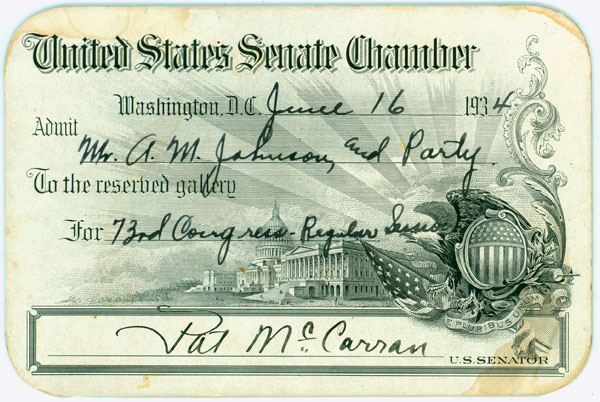 United States Senate Chamber
Washington, D.C. June 16 1934
Admit
Mr. A. M. Johnson, and Party.
To the reserved gallery
For 73rd Congress - Regular Session
E PLURIBUS UNUM
Pat McCarran
U.S. SENATOR